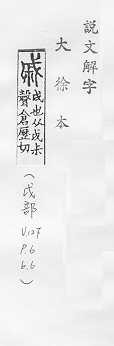 說文解字
大徐本
戚
戉也从戉尗
聲倉歷切
(戉部
P.6
b.6
)